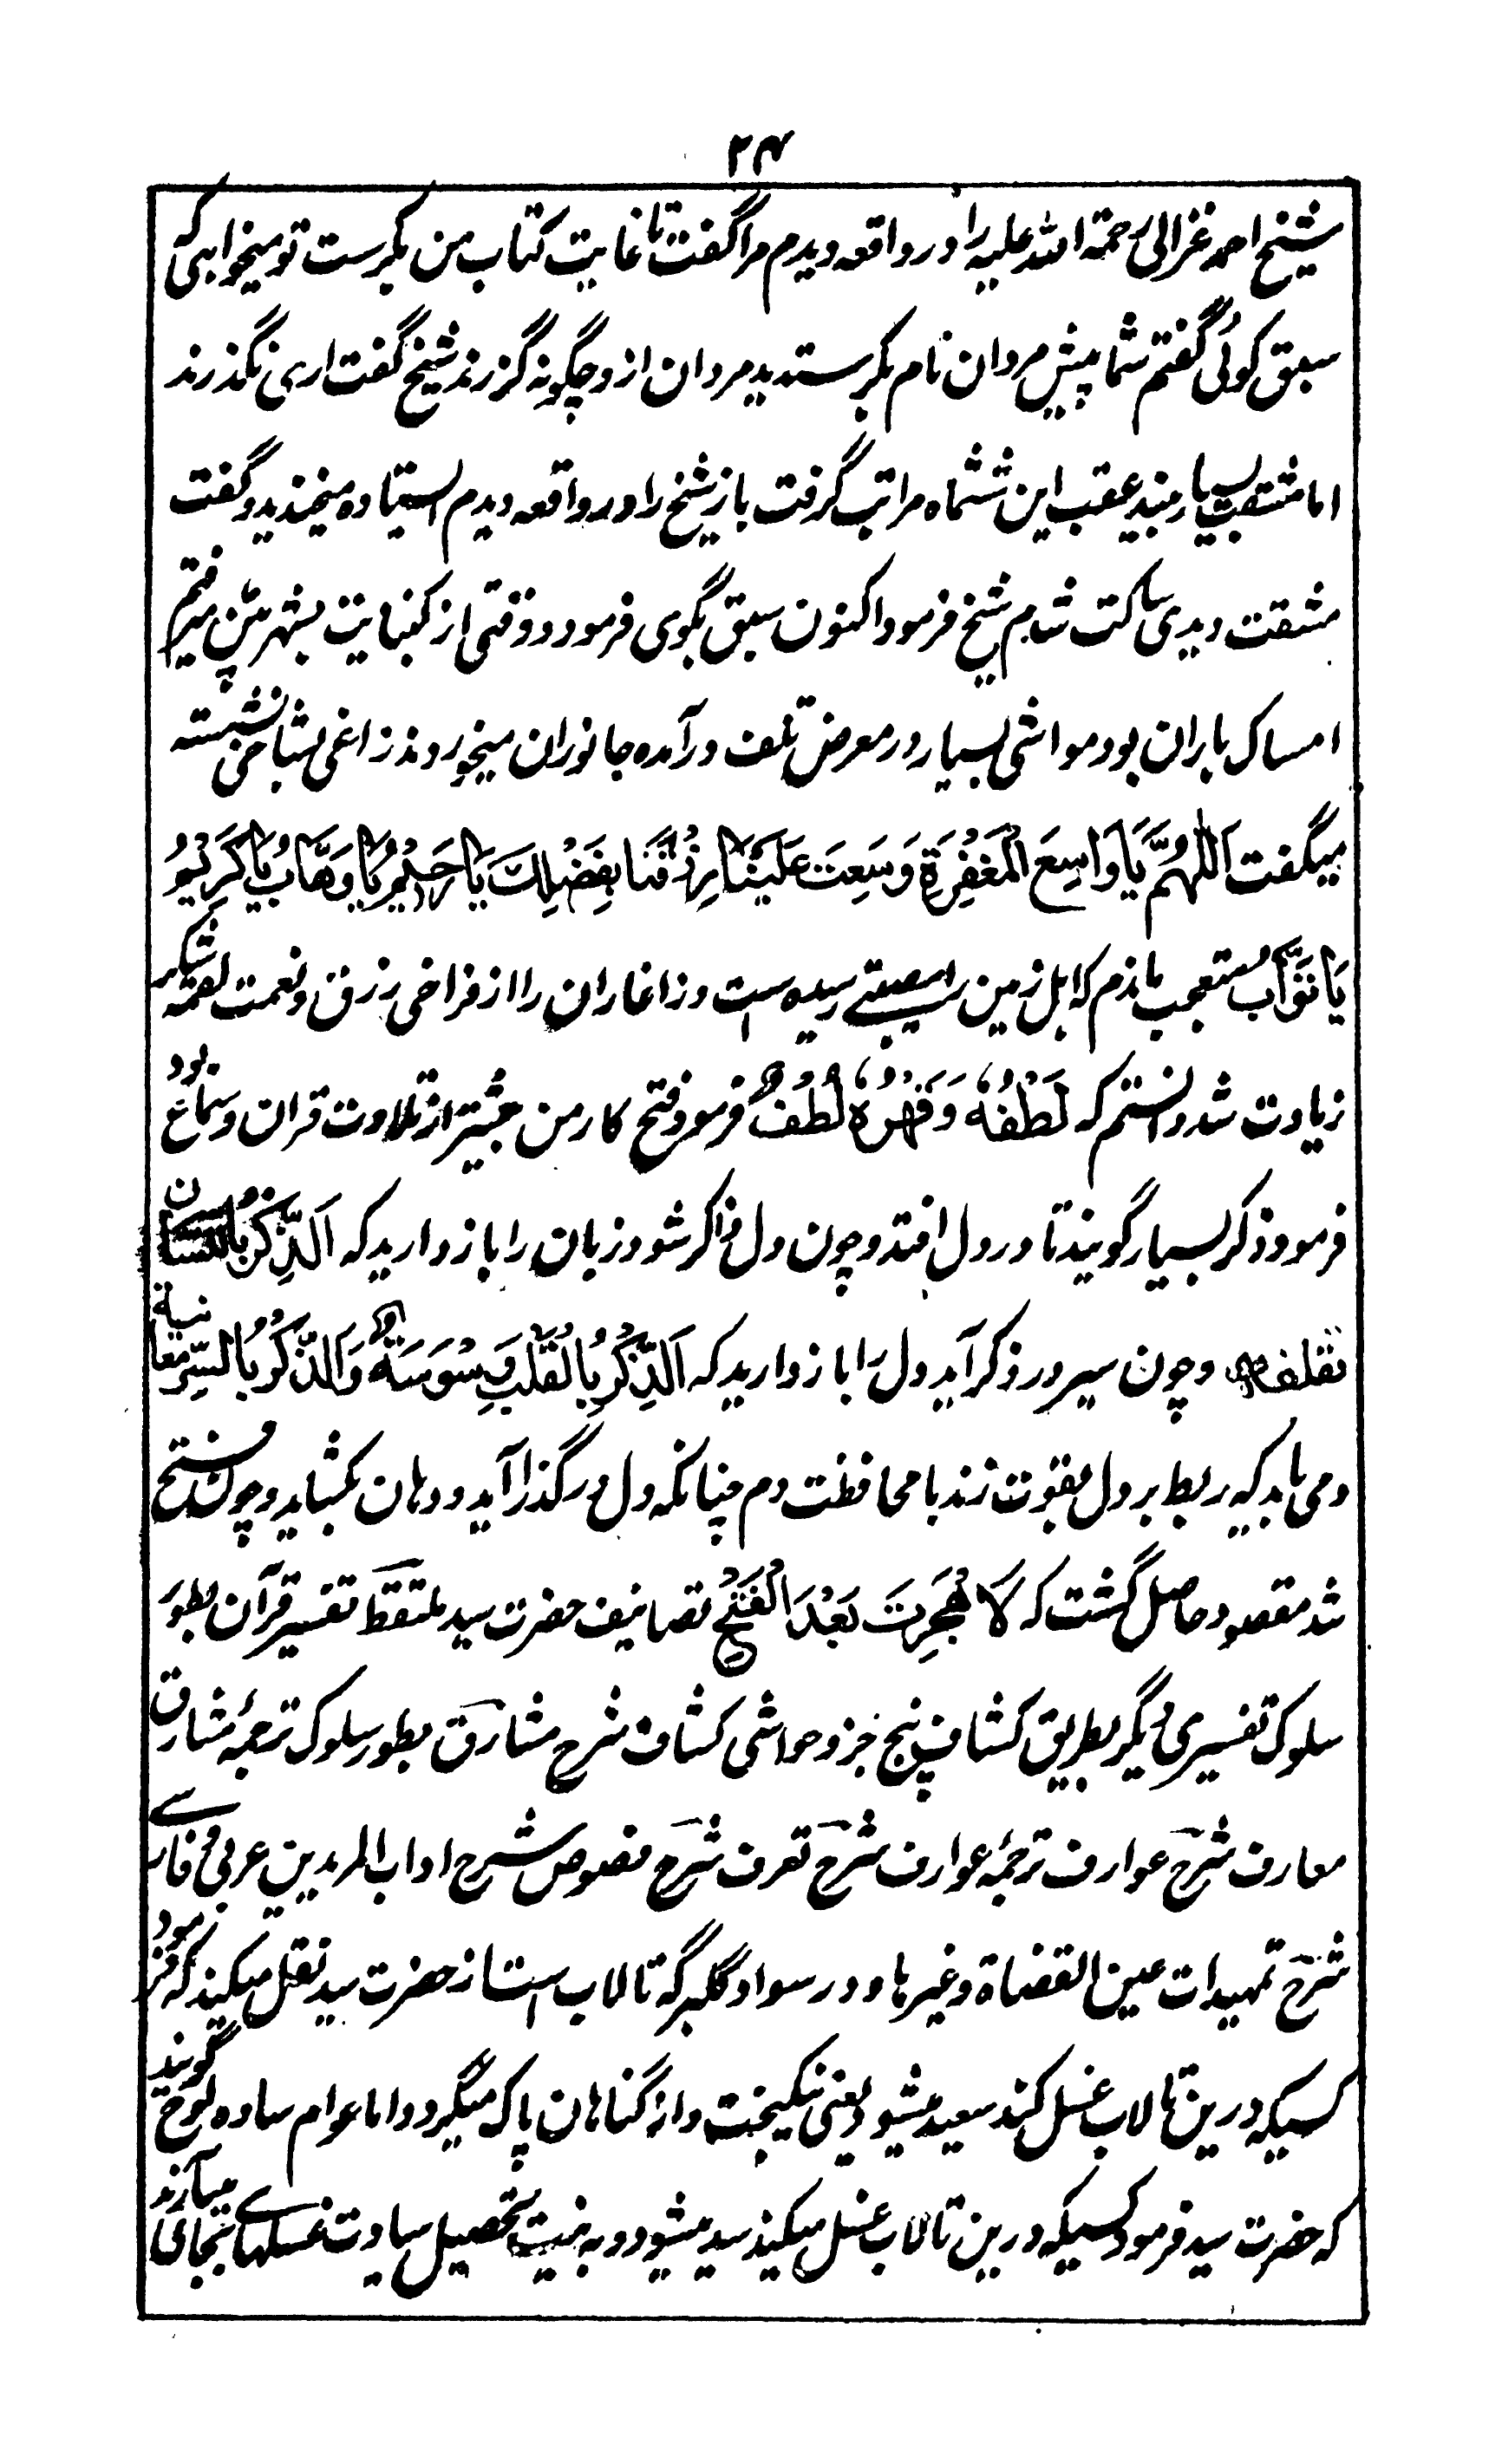 ۲۴
شیخ احمد غزالی رحمة الله علیه را در واقعه دیدم مرا گفت تا غایت کتاب من بکرست تو میخواهی که
سبق گوئی گفتم شما پیش مردان نام بکر ستدید مردان ازو چگونه گزرند شیخ گفت اری نگذرند
اما مشقت بسیار بیند عقب این ششماه مراتب گرفت باز شیخ را در واقعه دیدم استاده میخندید و گفت
مشقت دیدی ساکت شدم شیخ فرمود اکنون سبق بگوی فرمود وقتی از کنبایت بشهر پٹن میرفتم
امساک باران بود مواشی بسیار در معرض تلف درآمده جانوران میخوردند زاغی بشاخی نشسته
میگفت اَللّٰهُمَّ یَا وَاسِعَ الْمَغْفِرَةِ وَسِعَتَ عَلَیْنَا رِزْقَنَا بِفَضْلِكَ یَا رَحِیْمُ یَا وَهَّابُ یَا کَرِیْمُ
یَا تَوَّابُ متعجب ماندم که اهل زمین را مصیبتے رسیده است و زاغاران را از فراخی رزق و نعمت لقمه شکر
زیادت شد دانستم که لُطْفُهٗ وَقَهْرُهٗ لُطْفٌ فرمود فتح کار من بیشتر از تلاوت قران و سماع بود
فرمود ذکر بسیار گویند تا در دل افتد و چون دل ذاکر شود زبان را باز دارید که اَلذِّکْرُ بِاللِّسَان
لقلقه و چون سر در ذکر آید دل را باز دارید که اَلذِّکْرُ بِالْقَلْبِ وَسْوَسَةٌ وَالذِّکْرُ بِالسِّرِّ معاینة
و می باید که ربط بر دل بقوت زند با محافظت دم چنانکه دل در گذار آید و دهان بکشاید و چون فتح
شد مقصود حاصل گشت که لَا هِجْرَتَ بَعْدَ الْفَتْحِ تصانیف حضرت سید ملتقط تفسیر قرآن بطور
سلوک تفسیری دیگر بطریق کشاف پنج جزو حواشی کشاف شرح مشارق بطور سلوک ترجمه مشارق
معارف شرح عوارف ترجمه عوارف شرح تعرف شرح فصوص شرح اداب المریدین عربی و فارسے
شرح تمهیدات عین القضاة و غیرها و در سواد گلبرگه تالاب است از حضرت سید نقل میکنند که فرمود
کسیکه درین تالاب غسل کند سعید میشود یعنی نیکبخت و از گناهان پاک میگردد اما عوام ساده لوح گویند
که حضرت سید فرمود کسیکه درین تالاب غسل میکند سید میشود و به نیت تحصیل سیادت غسلهاے بجای میآرند